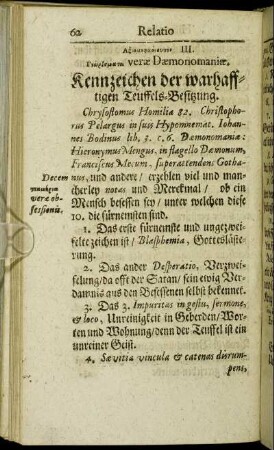 62 Relatio
III.
veræ Dæmonomaniæ.
Kennzeichen der warhaff-
tigen Teuffels-Besitzung.
Chrysostomus Homilia 82. Christopho-
rus Pelargus in suis Hypomnemat. Iohan-
nes Bodinus lib. 3. c. 6. Dæmonomaniæ:
Hieronymus Mengus. in flagello Dæmonum,
Franciscus Mecum. superattendens Gotha-
nus, und andere / erzehlen viel und man-
cherley notas und Merckmal / ob ein
Mensch besessen sey / unter welchen diese
10. die fürnemsten sind.
Decem
veræ ob-
sessionis.
1. Das erste fürnemste und ungezwei-
felte zeichen ist / Blasphemia, Gotteslåste-
rung.
2. Das ander Desperatio, Verzwei-
felung / da offt der Satan / sein ewig Ver-
damnis aus den Besessenen selbst bekennet.
3. Das 3. Impuritas in gestu, sermone,
& loco, Unreinigkeit in Geberden / Wor-
ten und Wohnung / denn der Teuffel ist ein
unreiner Geist.
4. Sævitia vincula & catenas disrum-
pens,